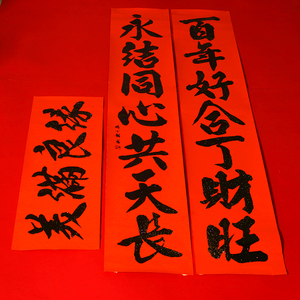 百年好合丁財旺
永结同心共天长
美滿良缘